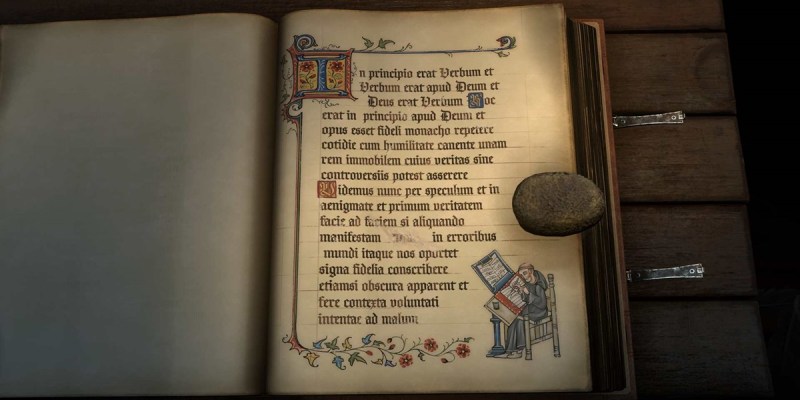 In principio erat Verbum et
Verbum erat apud Deum et
Deus erat Verbum Hoc
erat in principio apud Deum et
opus esset fideli monacho repetere
cotidie cum humilitate canente unam
rem immobilem cuius veritas sine
controversiis potest asserere
Videmus nunc per speculum et in
aenigmate et primum veritatem
facie ad faciem si aliquando
manifestam in erroribus
mundi itaque nos oportet
signa fidelia conscribere
etiamsi obscura apparent et
fere contexta voluntati
intentae ad malum